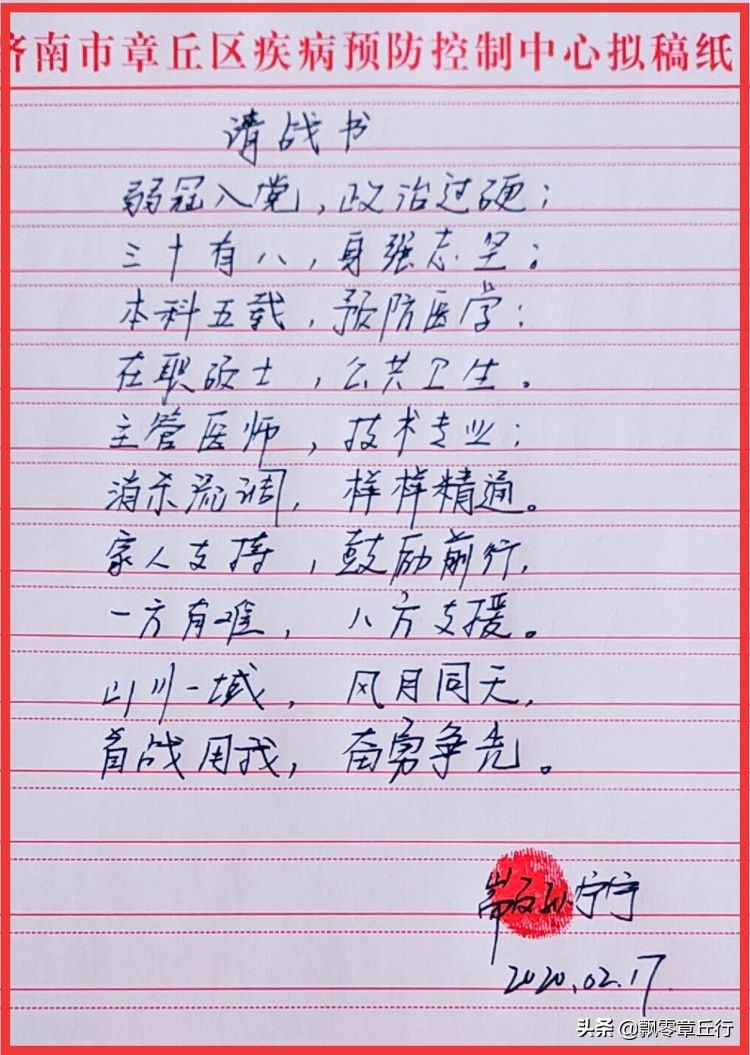 济南市章丘区疾病预防控制中心拟稿纸
请战书
弱冠入党,政治过硬;
三十有八,身强志坚。
本科五载,预防医学;
在职硕士,公共卫生。
主管医师,技术专业;
消杀流调,样样精通。
家人支持,鼓励前行,
一方有难,八方支援。
山川一域,风月同天,
首战用我,奋勇争先。
宁宁
2020.02.17
头条 @飘零章丘行